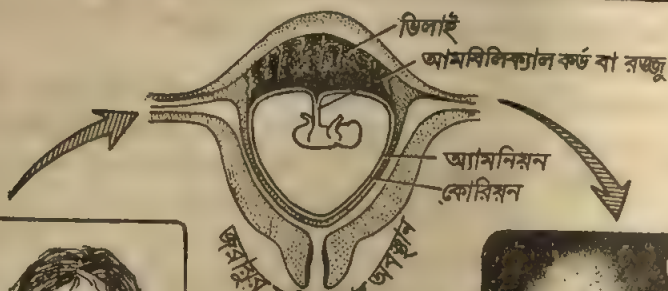 ভিলাই
আমবিলিক্যাল কর্ড বা রজ্জু
অ্যামনিয়ন
কোরিয়ন
জরায়ুর
অবস্থান